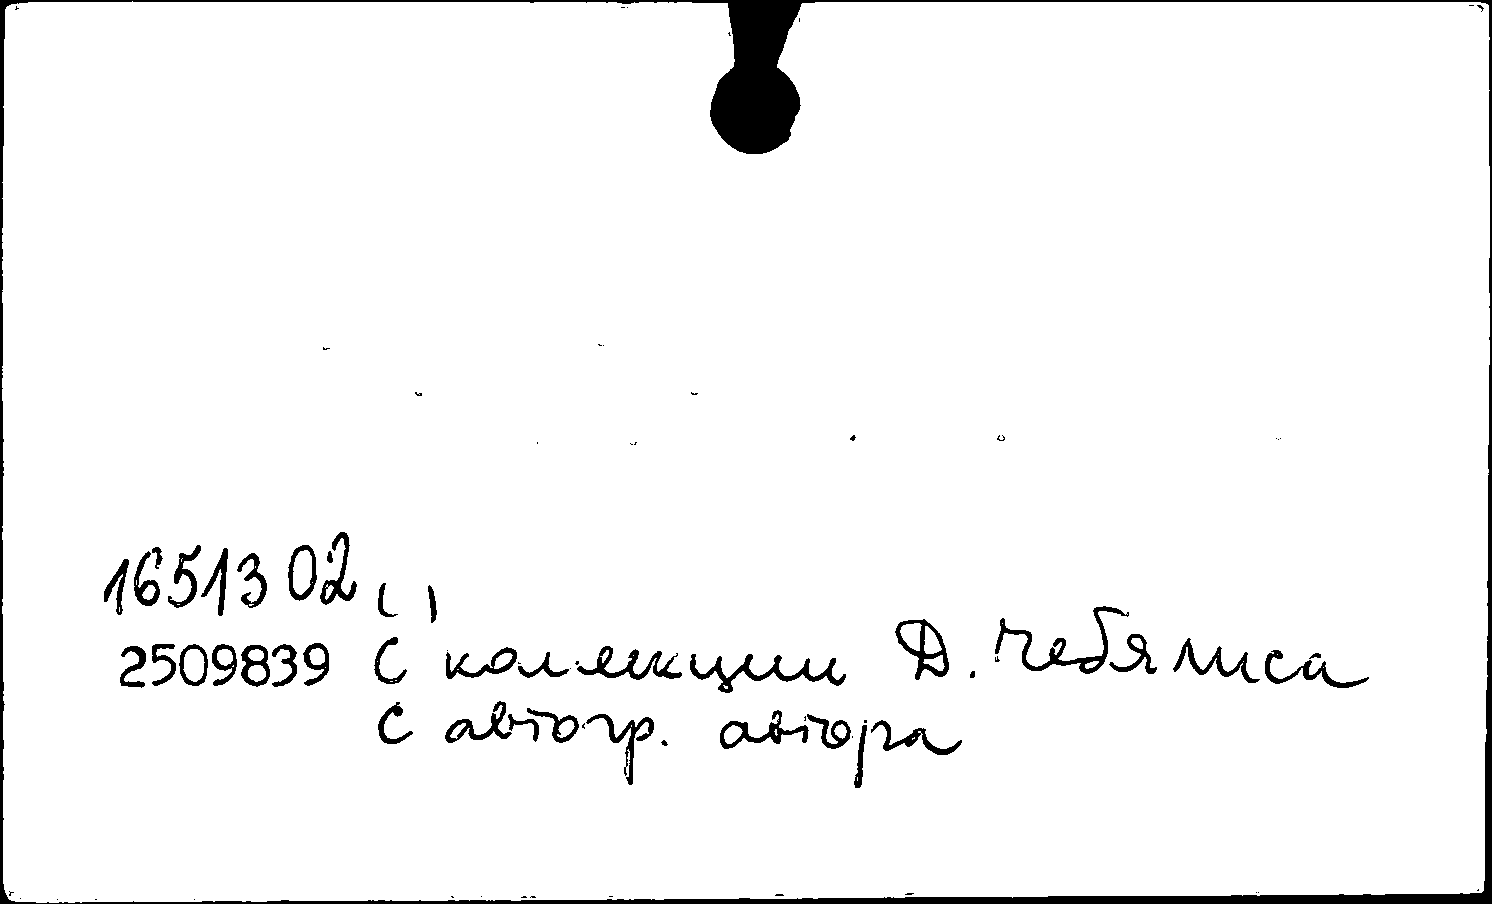 1651302 ( )
2509839 С коллекции Д. Чебялиса
С автогр. автора